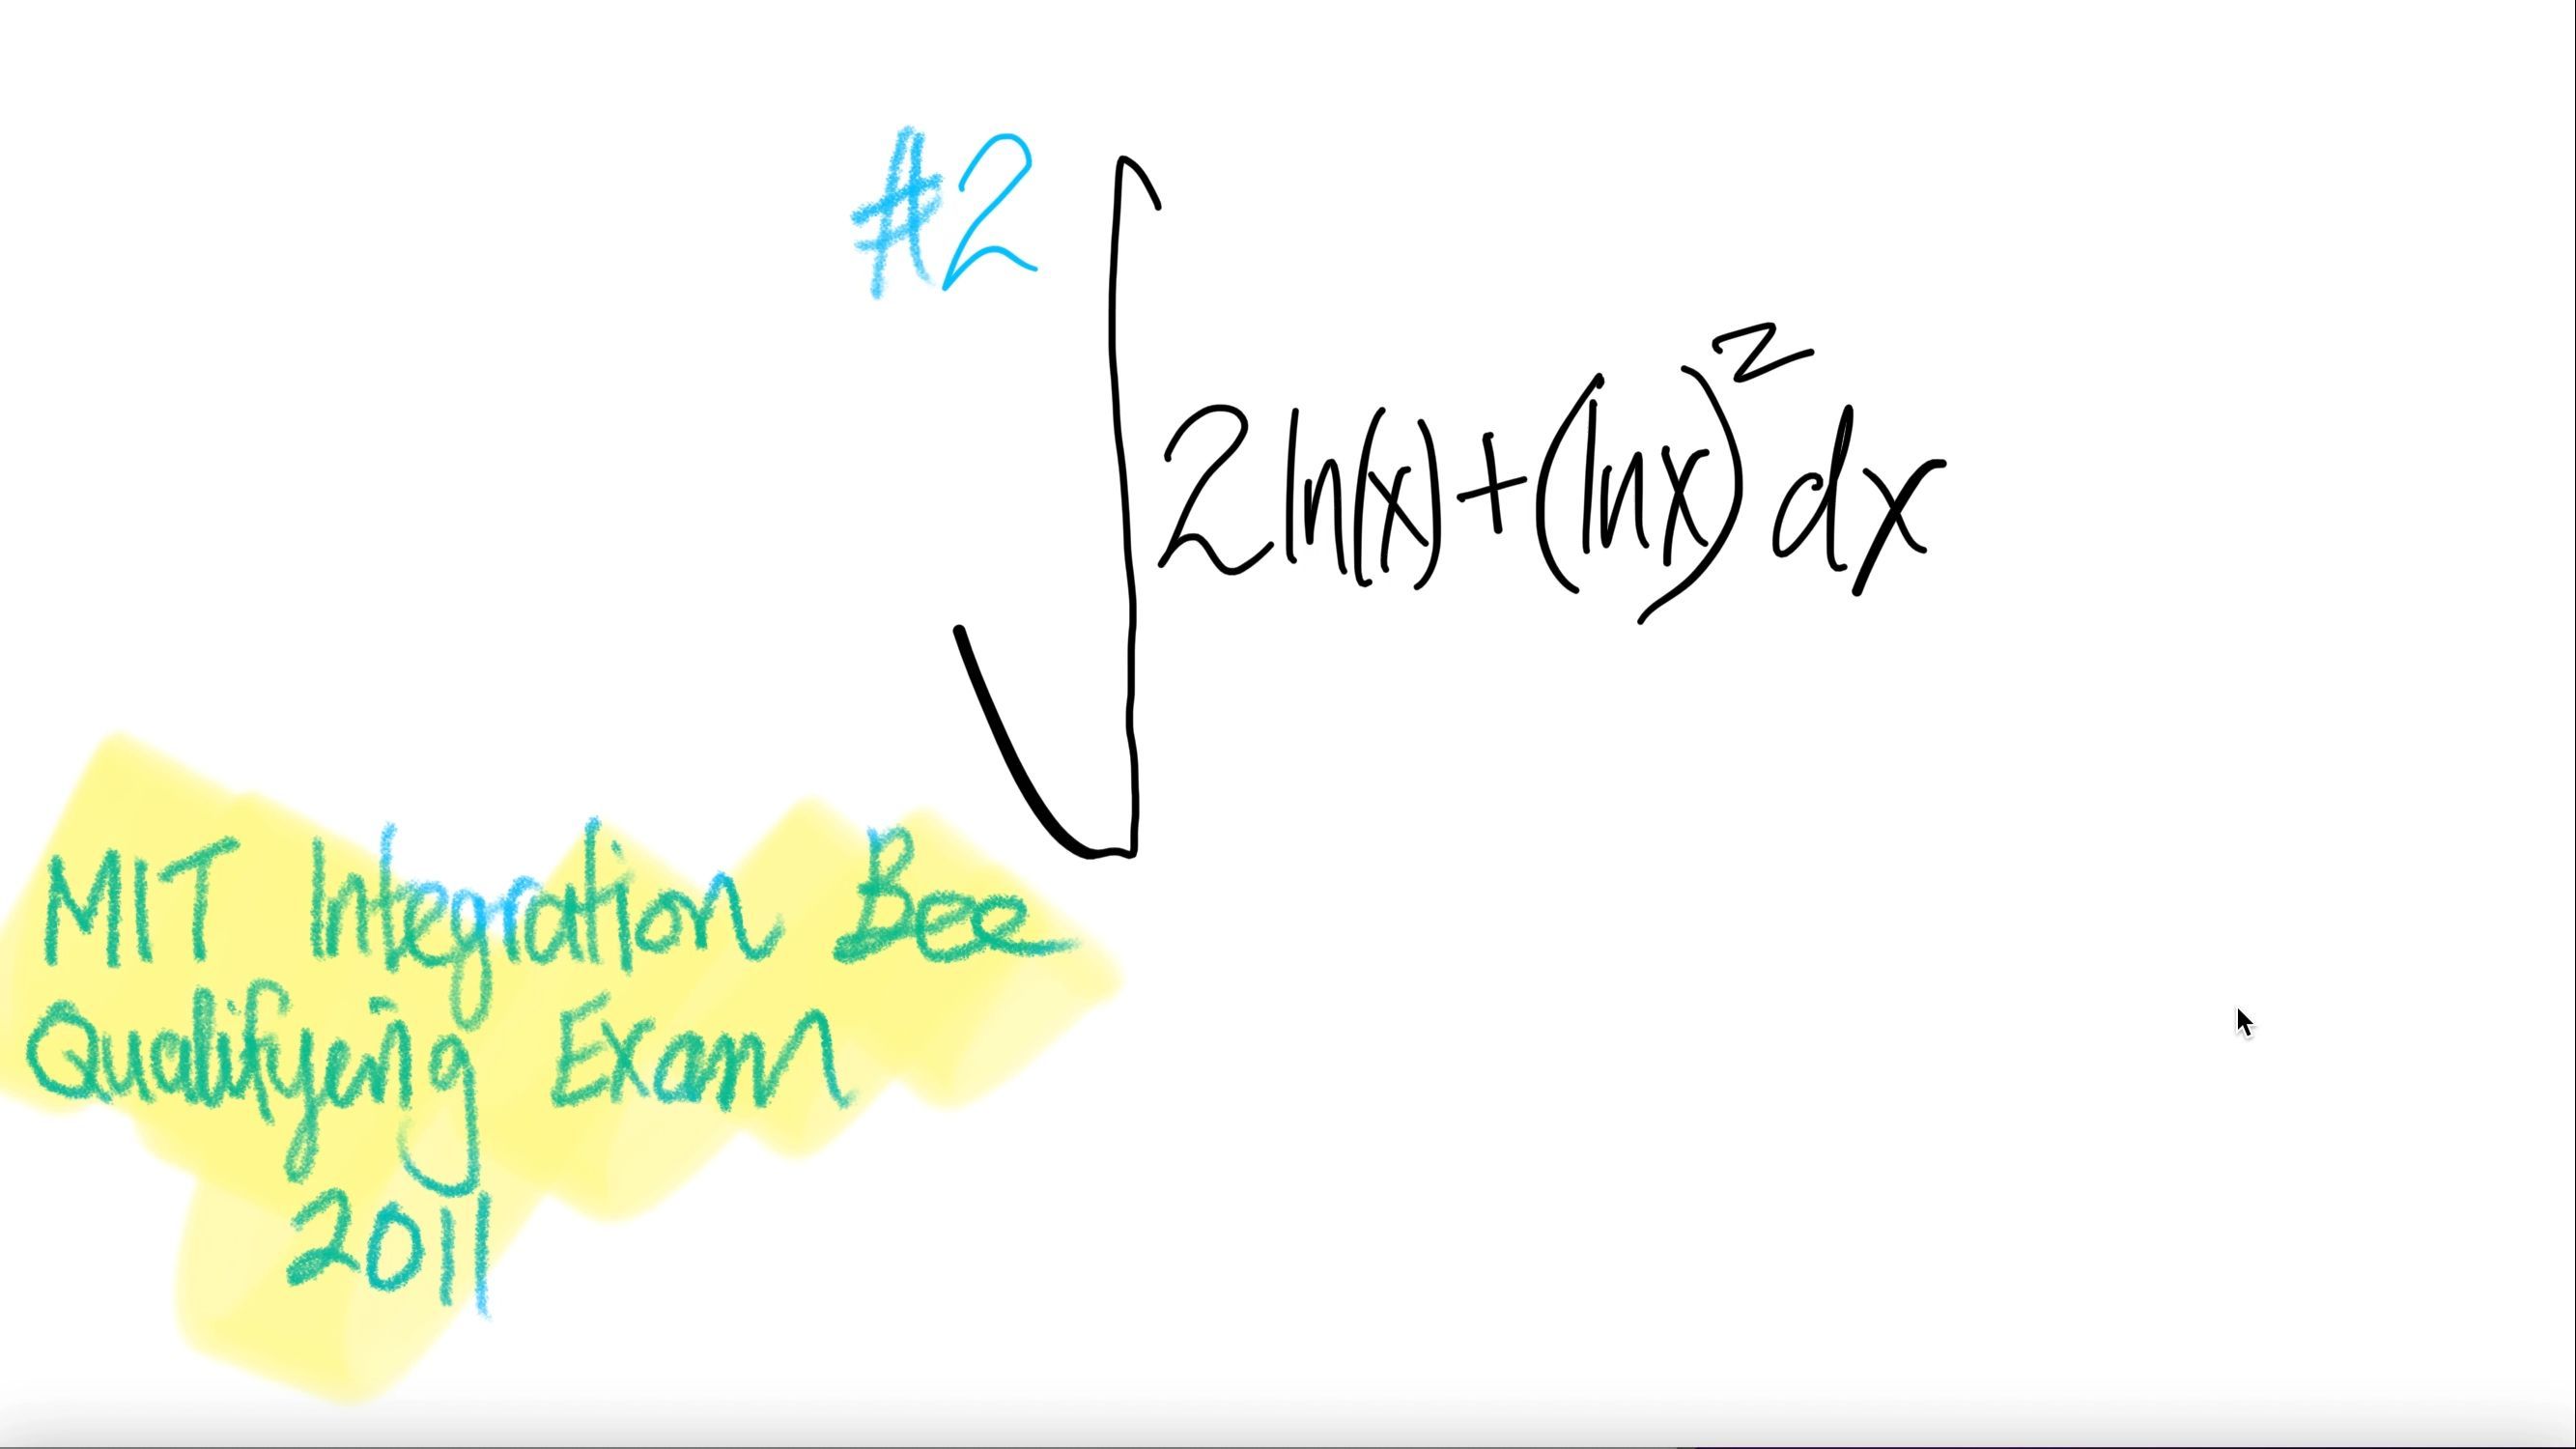 #2
∫ 2 ln(x) + (lnx)² dx
MIT Integration Bee
Qualifying Exam
2011